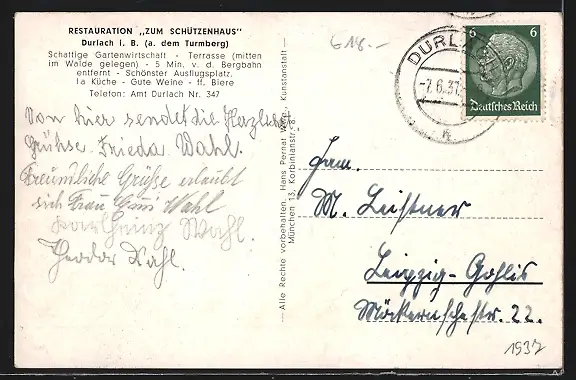 RESTAURATION „ZUM SCHÜTZENHAUS"
Durlach i. B. (a. dem Turmberg)
Schattige Gartenwirtschaft - Terrasse (mitten
im Walde gelegen) - 5 Min. v. d. Bergbahn
entfernt - Schönster Ausflugsplatz.
Ia Küche - Gute Weine - ff. Biere
Telefon: Amt Durlach Nr. 347
Von hier sendet die Herzlichst
Grüße Frieda Wahl.
Freundliche Grüße erlaubt
sich Frau Wahl
Karlheinz Wahl.
Theodor Wahl.
— Alle Rechte vorbehalten. Hans Pernat Kunstanstalt —
München 13, Korbinianstr. 8
618.-
DURLACH
-7.6.37
6 6
Deutsches Reich
Fam.
M. Leistner
Leipzig-Gohlis
Möckernschestr. 22.
1937